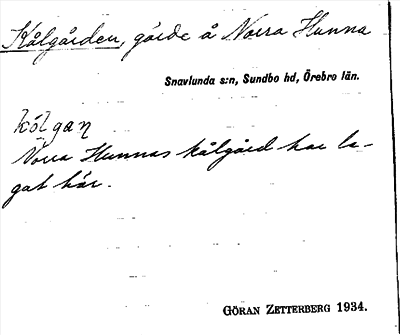 Kålgården, gärde å Norra Hunna
Snavlunda s:n, Sundbo hd, Örebro län.
kó̄lgaɳ
Norra Hunnas kålgård har le-
gat här.
GÖRAN ZETTERBERG 1934.